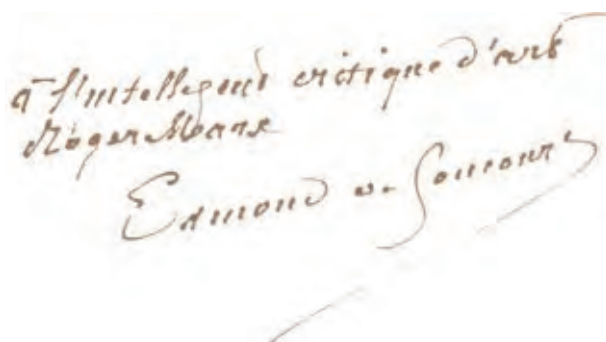 à l'intelligent critique d'art
Roger Marx
Edmond de Goncourt